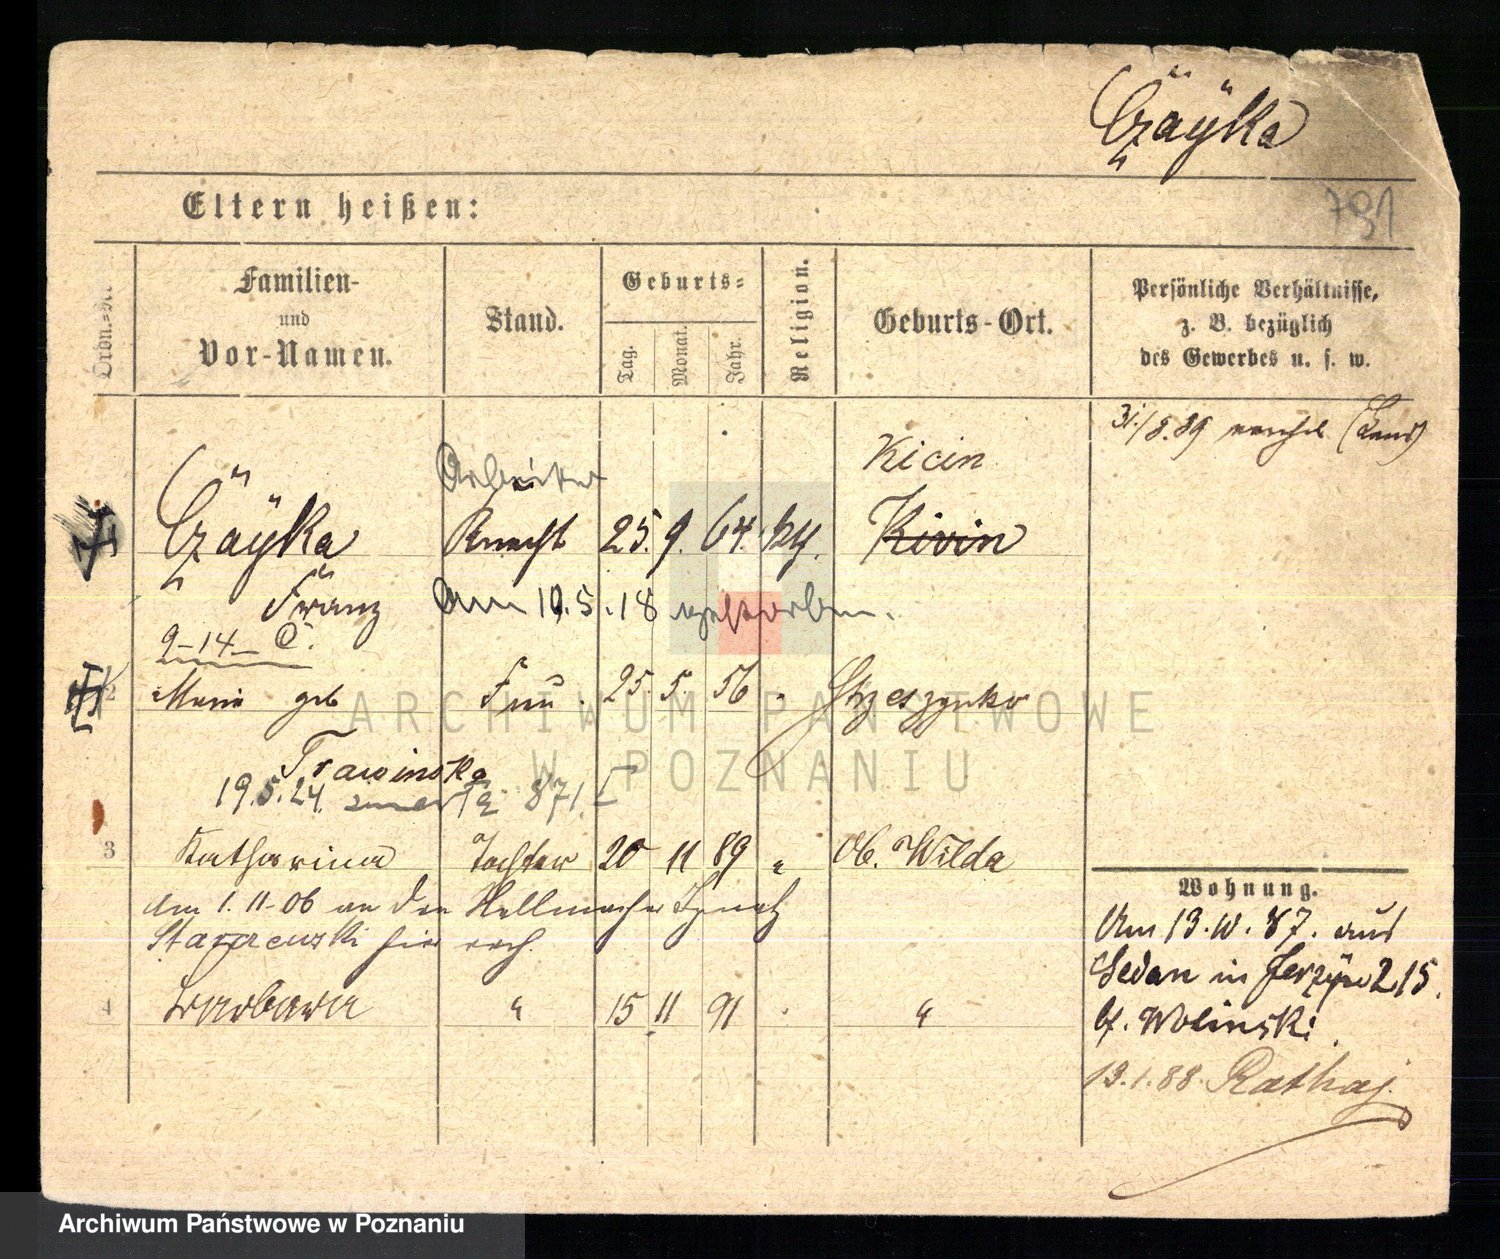 Czäÿka
791
Eltern heißen:
Ordn.-
Familien-
und
Vor-Namen.
Stand.
Geburts-
Tag.
Monat.
Jahr.
Religion.
Geburts-Ort.
Persönliche Verhältnisse,
z. B. bezüglich
des Gewerbes u. s. w.
31/8.89 (Land)
Arbeiter
Kicin
Czäÿka Knecht 25. 9. 64. kth. Kivin
Franz Am 10.5.18 gestorben.
9-14- C.
2 Marie geb Frau. 25. 5. 56 " Strzeszynko
Trawinska
19.5.24. 871.
3 Katharina Tochter 20 11 89 " Ob. Wilda
Am 1.11-06 an den Ignatz
hier verh.
4 Barbara " 15 11 91 "
Wohnung.
Am 13.10.87. aus
Sedan in Jerzÿce 215.
b/. Wolinski.
13.1.88. Rathaj.
ARCHIWUM PAŃSTWOWE
W POZNANIU
Archiwum Państwowe w Poznaniu